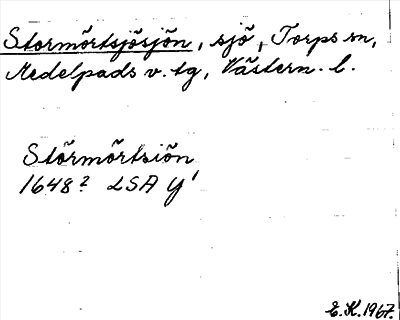 Stormörtsjösjön, sjö, Torps sn,
Medelpads v. tg, Västern. l.
Störmörtsiön
1648? LSA Y'
E.K.1967.